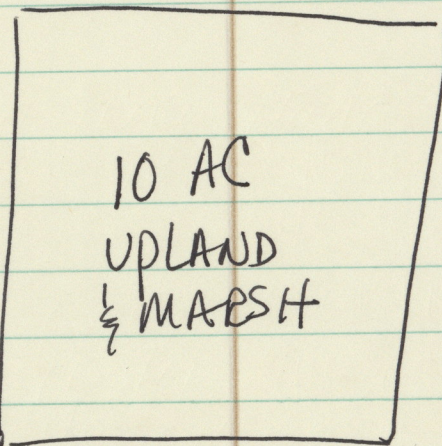 10 AC
UPLAND
& MARSH